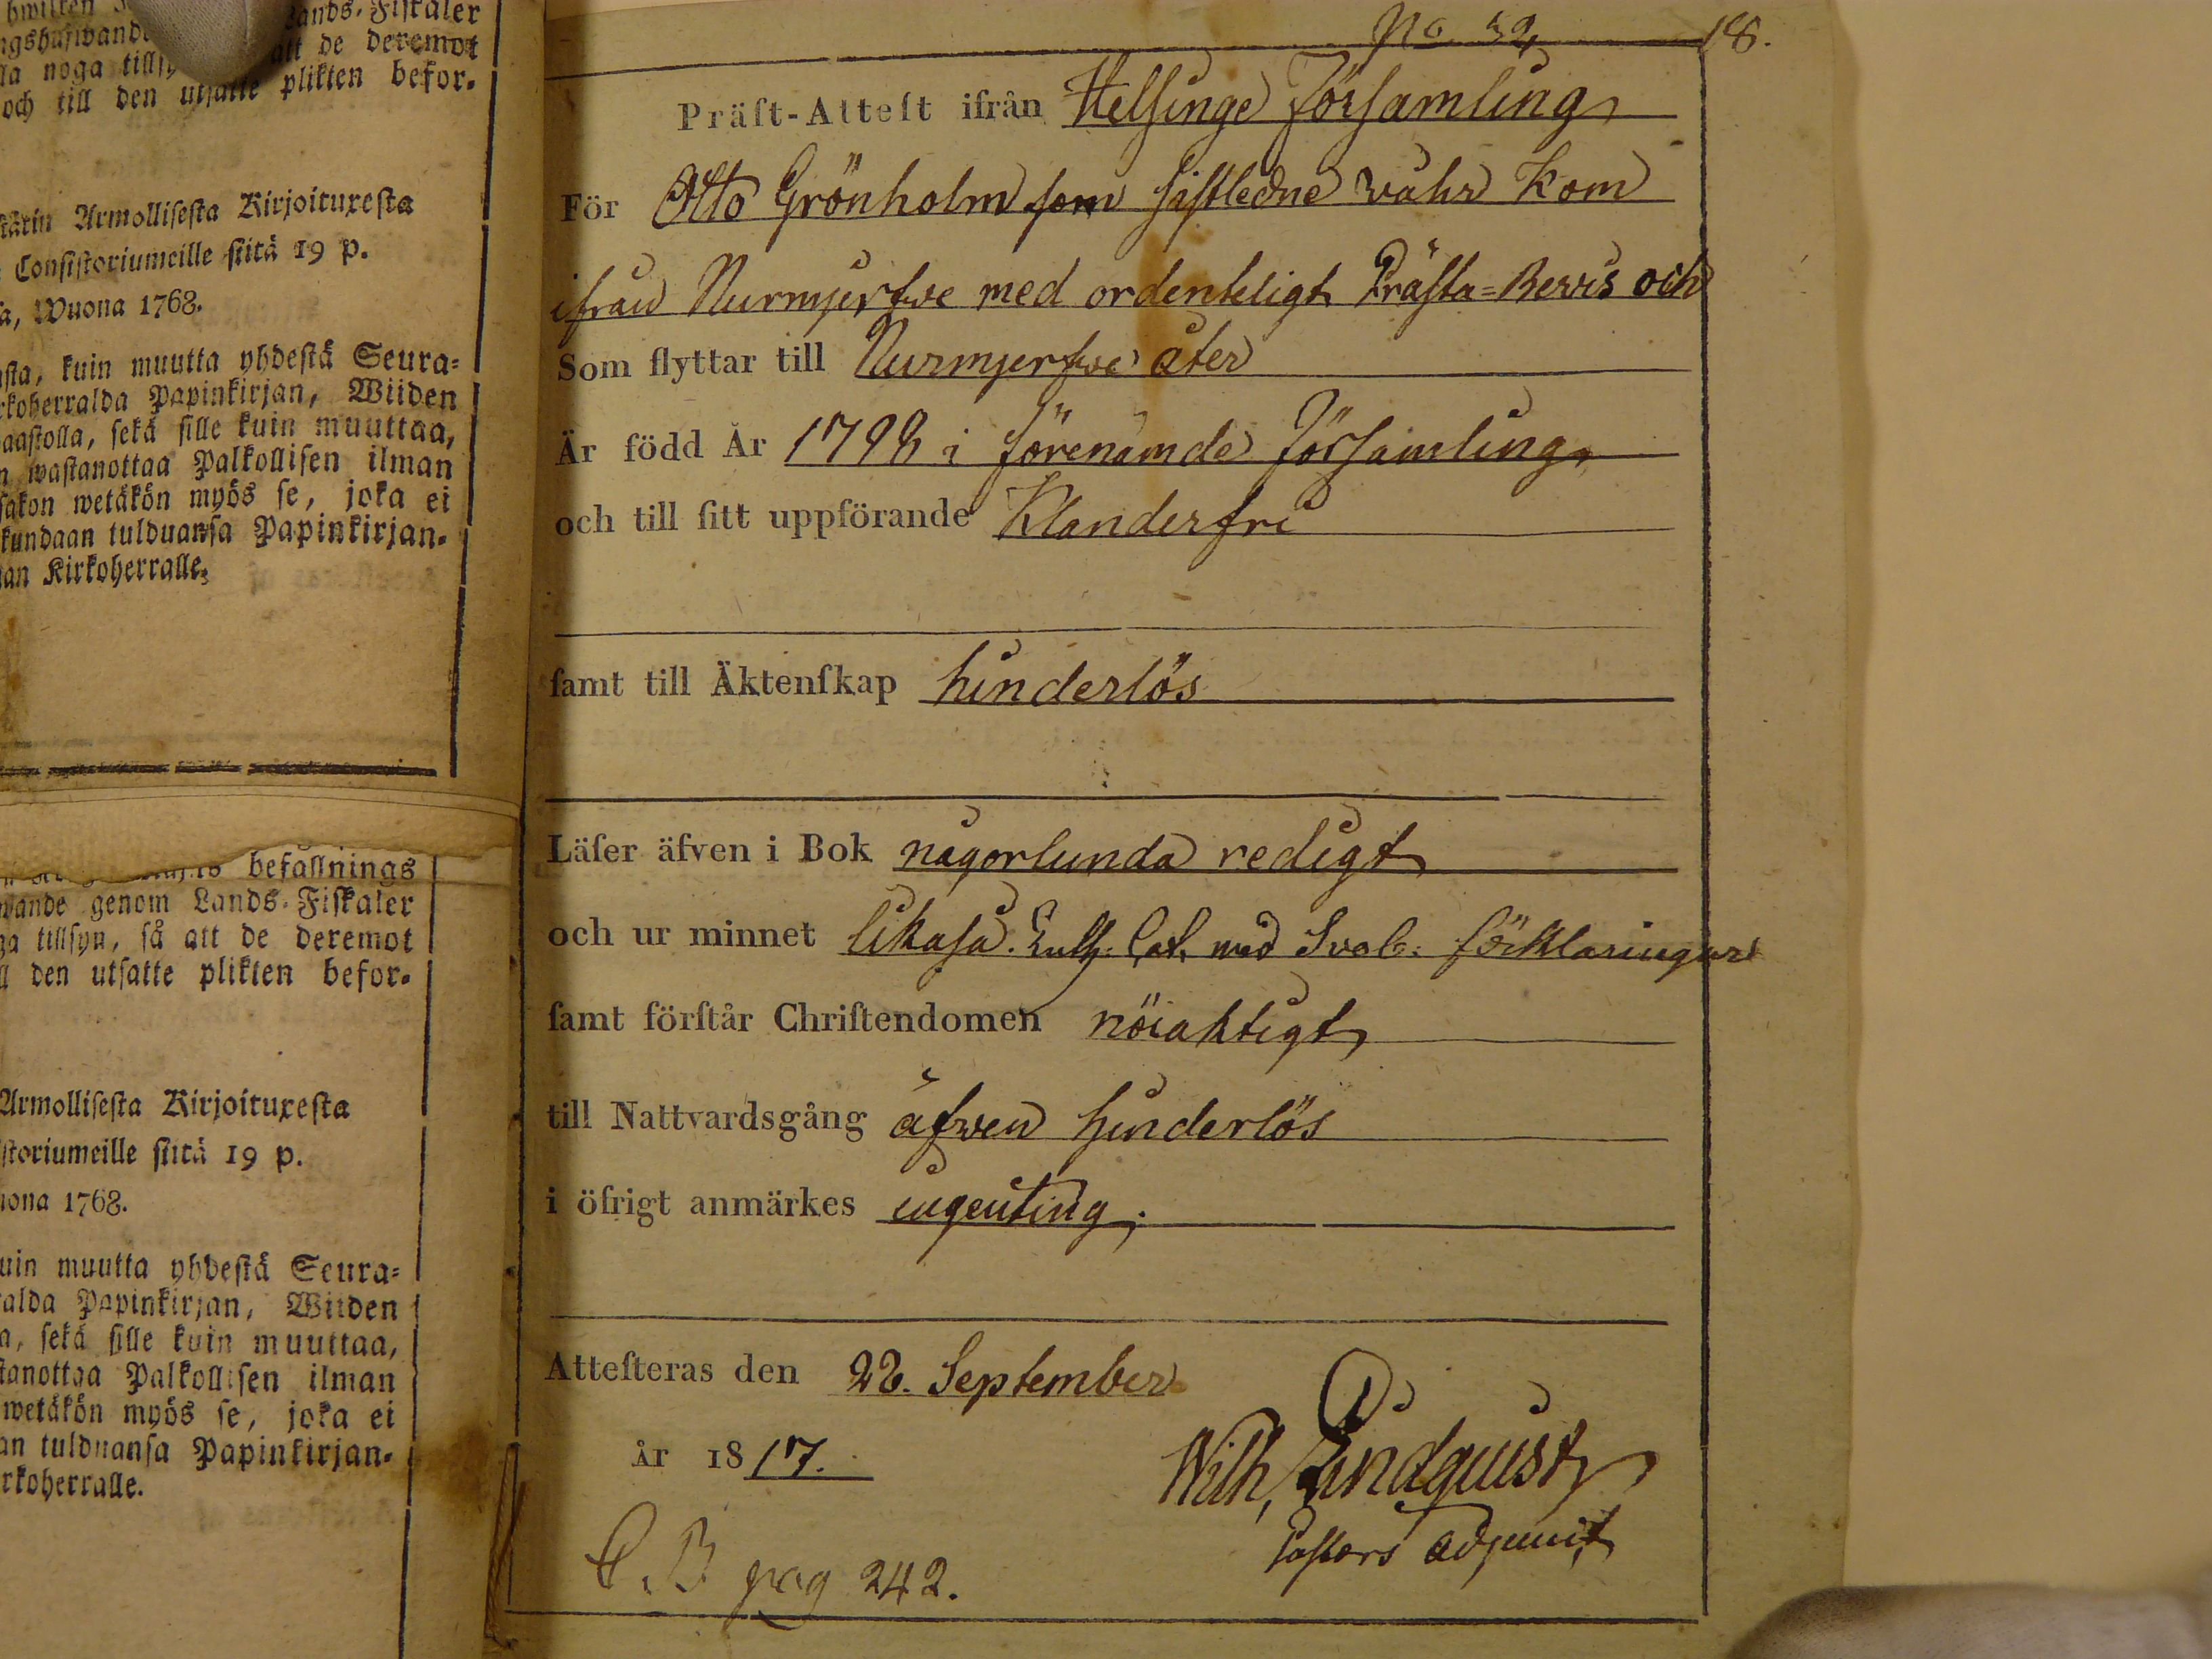 Lands-Fiskaler
att de deremot
noga
och till den utsatte plikten befor-
Armollisesta Kirjoituxesta
Consistoriumeille siitä 19 p.
Wuona 1768.
kuin muutta yhdestä Seura-
Papinkirjan, Wiiden
sekä sille kuin muuttaa,
wastanottaa Palkollisen ilman
wetäkön myös se, joka ei
tulduansa Papinkirjan-
Kirkoherralle.
befallnings
genom Lands-Fiskaler
tillsyn, så att de deremot
den utsatte plikten befor-
Armollisesta Kirjoituxesta
siitä 19 p.
1768.
muutta yhdestä Seura-
Papinkirjan, Wiiden
sekä sille kuin muuttaa,
Palkollisen ilman
wetäkön myös se, joka ei
tulduansa Papinkirjan-
No 32, 18.
Präst-Attest ifrån Helsinge Församling
För Otto Grönholm som sistledne våhr Kom
ifrån Nurmjerfwe med ordenteligt Prästa-Bewis och
Som flyttar till Nurmjerfwe åter
Är född År 1798 i förenämde Församling
och till sitt uppförande Klanderfri
samt till Äktenskap hinderlös
Läser äfven i Bok någorlunda redigt
och ur minnet likaså. Luth: Cat. med Sveb: förklaringar
samt förstår Christendomen nöjaktigt
till Nattvardsgång äfwen hinderlös
i öfrigt anmärkes ingenting.
Attesteras den 22. September
år 1817.
Wilh, Lindquist
Pastors adjunct
C. B pag 242.